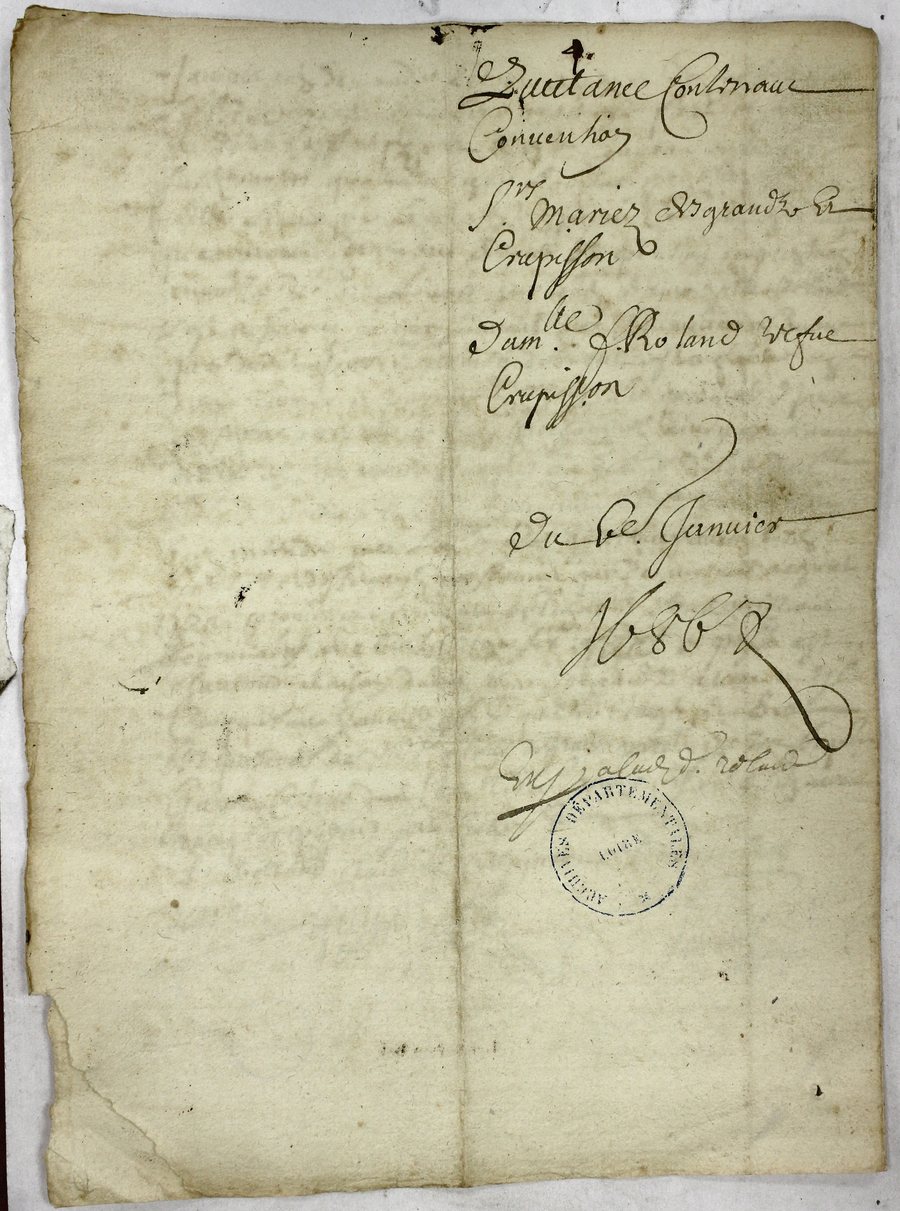 4.
Quittance Contenant
Convention
S.rs Mariez Desgrandz Et
Crupisson
Dam.lle f. Roland vefue
Crupisson
Du 6e. Januier
1686
d. roland
ARCHIVES DÉPARTEMENTALES
LOIRE